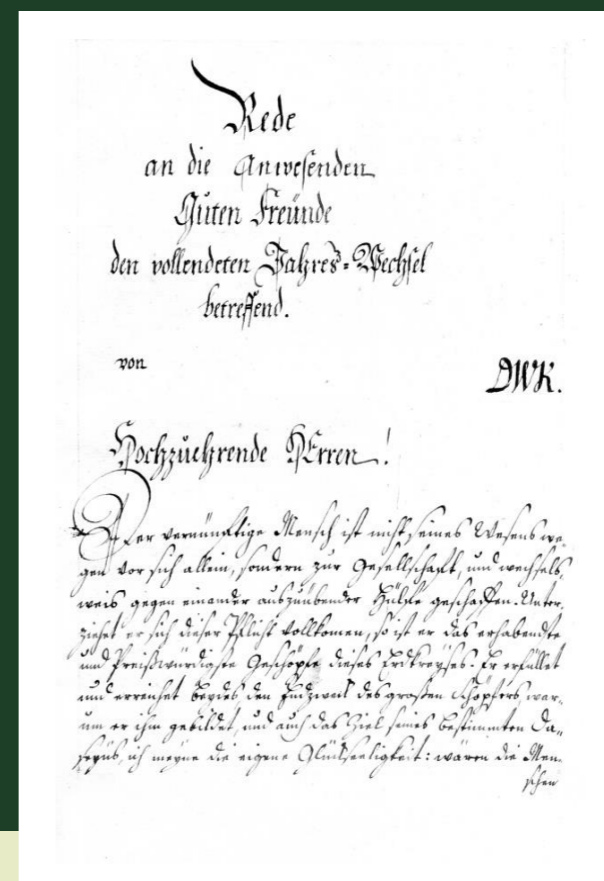 Rede
an die Anwesenden
Guten Freünde
den vollendeten Jahres=Wechsel
betreffend.
von DWK.
Hochzuehrende HErren!
Der vernünftige Mensch ist nicht seines Wesens we-
gen vor sich allein, sondern zur Gesellschaft, und wechsels-
weis gegen einander auszuübender Hülfe geschaffen. Unter-
ziehet er sich dieser Pflicht vollkomen, so ist er das erhabendste
und Preißwürdigste Geschöpfe dieses Erdkreyses. Er erfüllet
und erreichet beydes, den Endzweck des großen Schöpfers war-
um er ihn gebildet, und auch das Ziel seines bestimmten Da-
seyns, ich meyne die eigene Glückseeligkeit: wären die Men-
schen